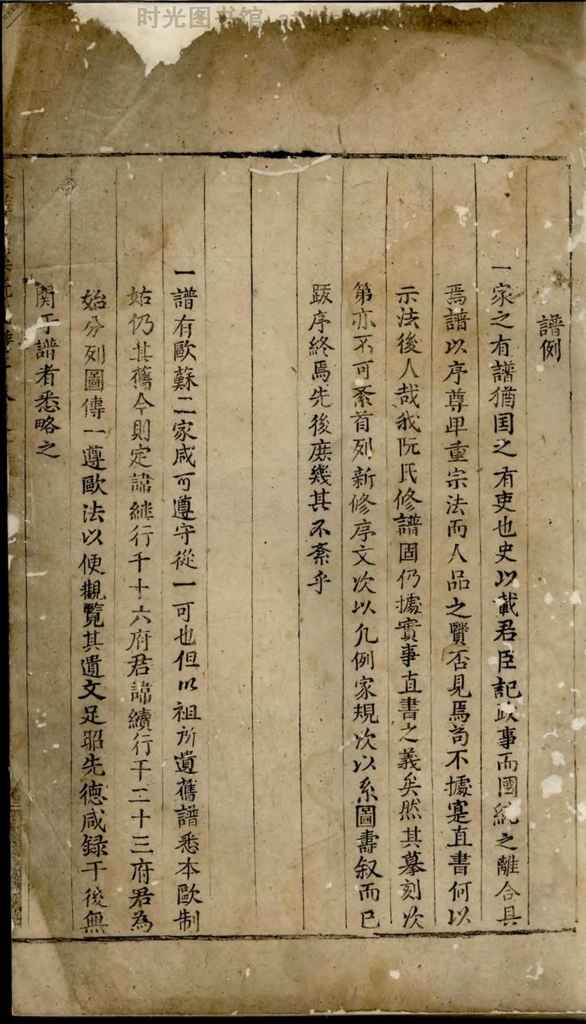 时光图书馆
譜例
一家之有譜猶国之有吏也史以載君臣記政事而國統之離合具
焉譜以序尊卑重宗法而人品之賢否見焉茍不據寔直書何以
示法後人哉我阮氏修譜固仍據實事直書之義矣然其摹刻次
第亦不可紊首列新修序文次以凡例家規次以系圖壽叙而已
跋序終焉先後庶幾其不紊乎
一譜有歐蘇二家咸可遵守從一可也但以祖所遺舊譜悉本歐制
姑仍其舊今則定諱維行千十六府君諱續行千二十三府君為
始分列圖傳一遵歐法以便觀覽其遺文足昭先德咸録于後無
関于譜者悉略之